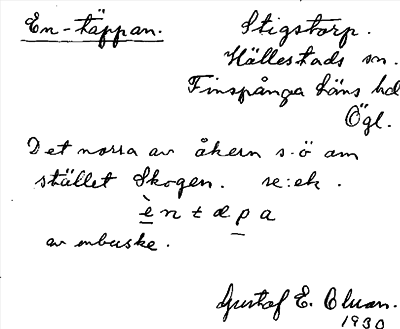 En-täppan.
Stigstorp.
Hällestads sn.
Finspånga läns hd
Ögl.
Det norra av åkern s.ö om
stället Skogen. se: ek.
è n t æ p a
av enbuske.
Gustaf E.
1930